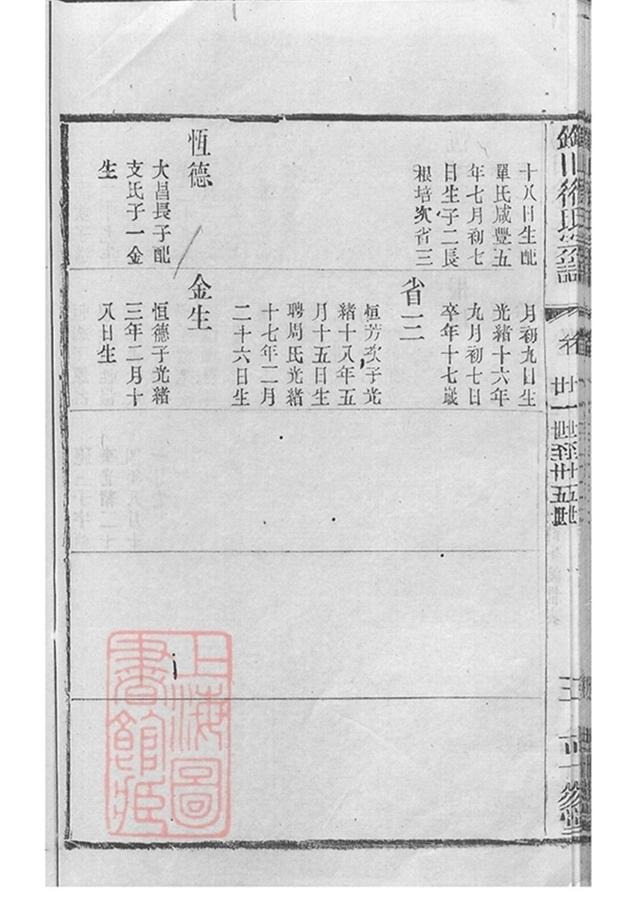 十八日生配
單氏咸豐五
年七月初七
日生子二長
根培次省三
恆德
大昌長子配
支氏子一金
生
月初九日生
光緒十六年
九月初七日
卒年十七歲
省三
恒芳次子光
緒十八年五
月十五日生
聘周氏光緒
十七年二月
二十六日生
金生
恒德子光緒
三年二月十
八日生
上海圖
書館藏